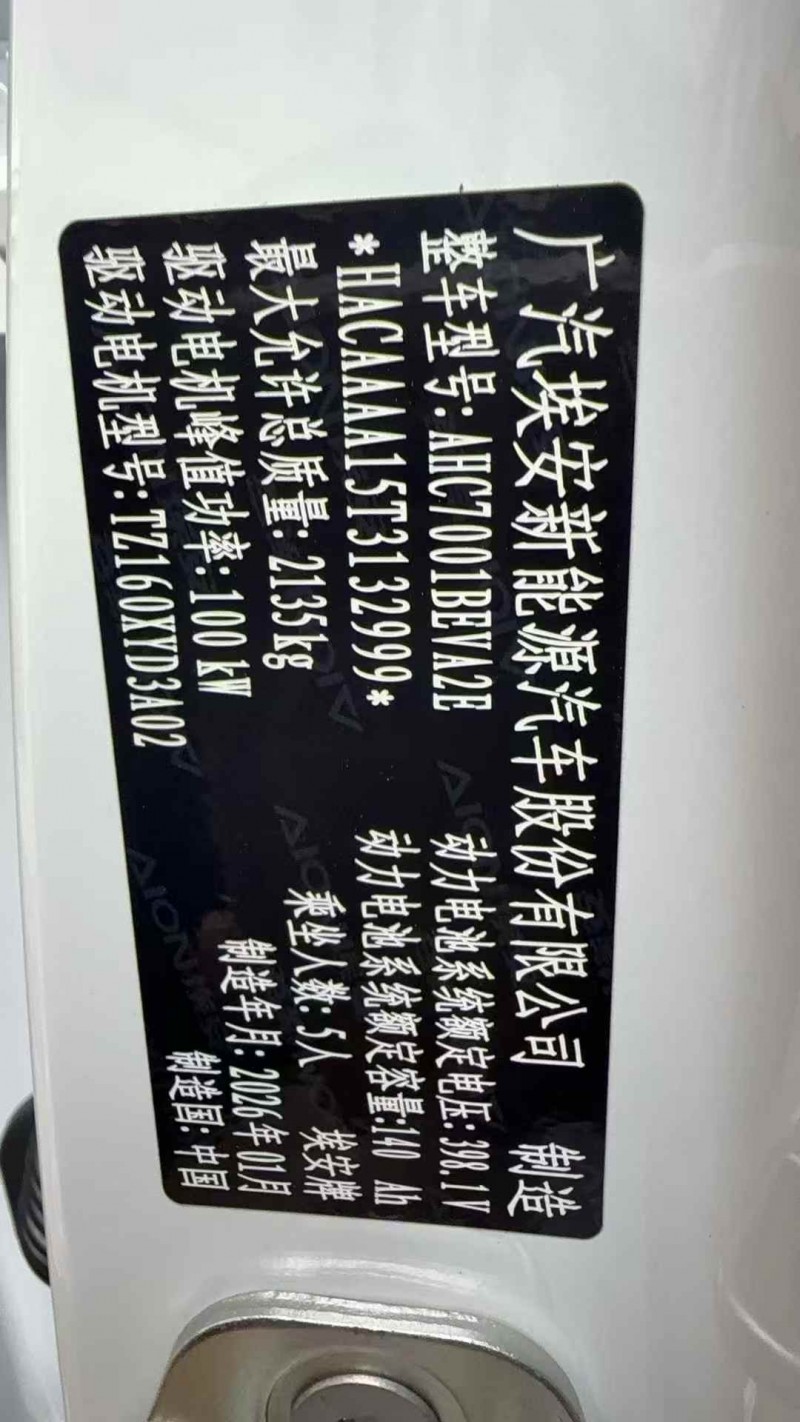 广汽埃安新能源汽车股份有限公司 制造
整车型号:AHC7001BEVA2E 动力电池系统额定电压:398.1V
*HACAAAA15T3132999* 动力电池系统额定容量:140 Ah
最大允许总质量:2135kg 乘坐人数:5人 埃安牌
驱动电机峰值功率:100 kW 制造年月:2026年01月
驱动电机型号:TZ160XYD3A02 制造国:中国
AION
AION
AION